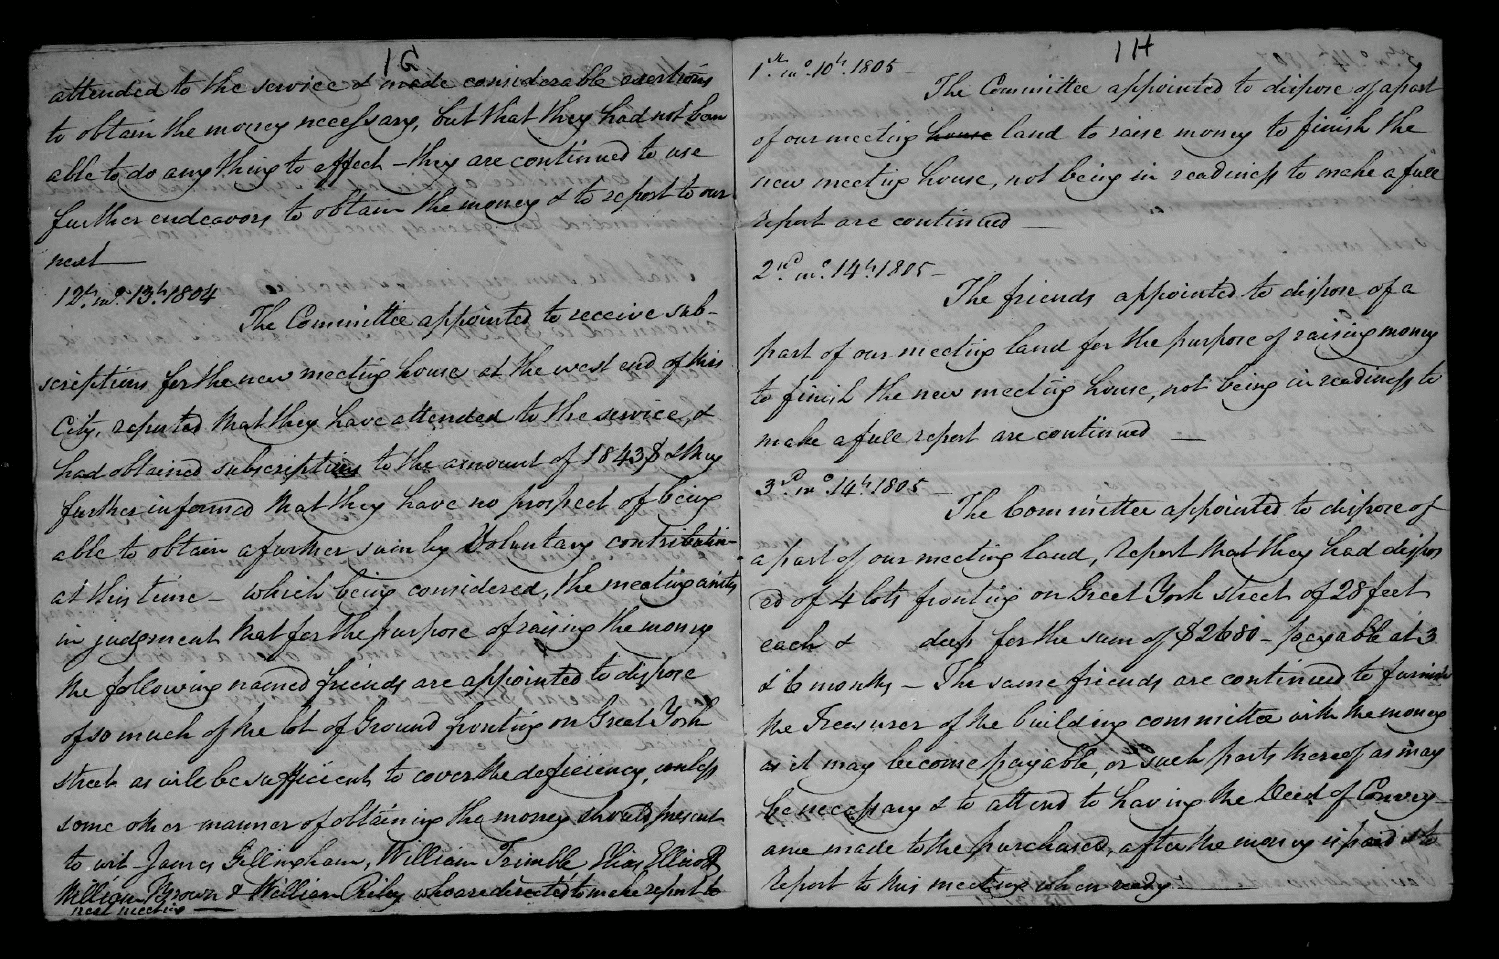 1G
attended to the service & made considerable exertions
to obtain the money necessary, but that they had not been
able to do any thing to effect – they are continued to use
further endeavors to obtain the money & to report to our
next —
12th mo. 13th 1804
The Committee appointed to receive sub-
scriptions for the new meeting house at the west end of this
City, reported that they have attended to the service, &
had obtained subscriptions to the amount of 1843$ & they
further informed that they have no prospect of being
able to obtain a further sum by Voluntary contribution
at this time – which being considered, the meeting unites
in judgment that for the purpose of raising the money
the following named friends are appointed to dispose
of so much of the lot of Ground fronting on Great York
street as will be sufficient to cover the deficiency, unless
some other manner of obtaining the money should present
to wit – James Gillingham, William Trimble, Elias Ellicott
William Brown & William Riley who are directed to make report to
next meeting —
1H
1st mo. 10th 1805 –
The Committee appointed to dispose of a part
of our meeting house land to raise money to finish the
new meeting house, not being in readiness to make a full
report are continued —
2nd mo. 14th 1805 –
The friends appointed to dispose of a
part of our meeting land for the purpose of raising money
to finish the new meeting house, not being in readiness to
make a full report are continued —
3rd mo. 14th 1805 –
The Committee appointed to dispose of
a part of our meeting land, report that they had dispos
ed of 4 lots fronting on Great York Street of 28 feet
each & deep for the sum of $2680 – payable at 3
& 6 months – The same friends are continued to furnish
the Treasurer of the building committee with the money
as it may become payable, or such parts thereof as may
be necessary & to attend to having the Deed of Convey-
ance made to the purchased, after the money is paid & to
report to this meeting when ready —